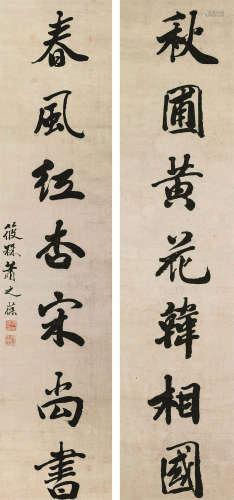 秋圃黄花韓相國
春風红杏宋尚書
筱
蕭之葆